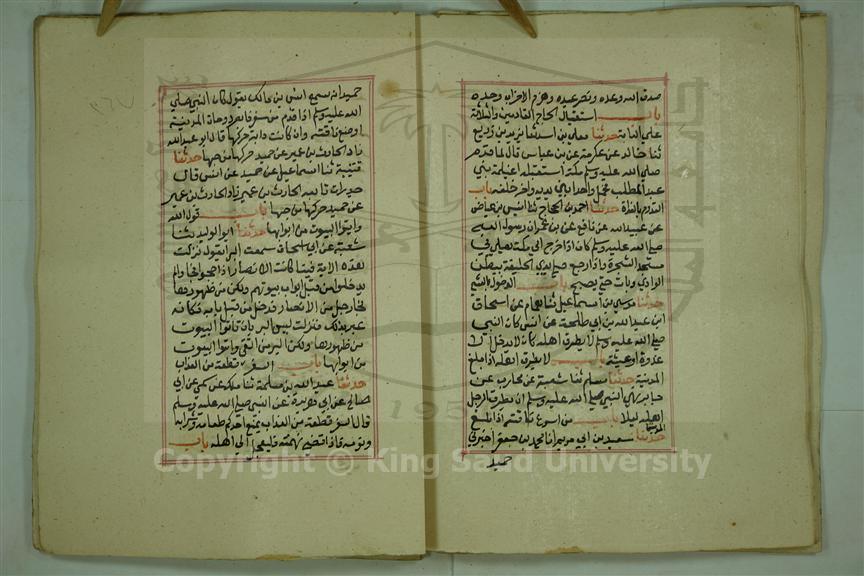 صدق الله وعده ونصر عبده وهزم الاحزاب وحده
باب استقبال الحاج القادمين والثلاثة
على الدابة حدثنا معلى بن اسد ثنا يزيد بن زريع
ثنا خالد عن عكرمة عن بن عباس قال لما قدم
صلى الله عليه وسلم مكة استقبله اغيلمة بني
عبد المطلب فحمل واحدا بين يديه واخر خلفه باب
القدوم بالغداة حدثنا احمد بن الحجاج ثنا انس بن عياض
عن عبيد الله عن نافع عن بن عمر ان رسول الله
صلى الله عليه وسلم كان اذا خرج الى مكة يصلي في
مسجد الشجرة واذا رجع صلى بذي الحليفة ببطن
الوادي وبات حتى يصبح باب الدخول بالعشي
حدثنا موسى بن اسماعيل ثنا همام عن اسحاق
ابن عبد الله بن ابي طلحة عن انس كان النبي
صلى الله عليه وسلم لا يطرق اهله كان لا يدخل الا
غدوة او عشية باب لا يطرق اهله اذا بلغ
المدينة حدثنا مسلم ثنا شعبة عن محارب عن
جابر نهى النبي صلى الله عليه وسلم ان يطرق الرجل
اهله ليلا باب من اسرع ناقته اذا بلغ
المدينة
حدثنا سعيد بن ابي مريم انا محمد بن جعفر اخبرني
حميد
حميد انه سمع انس بن مالك يقول كان النبي صلى
الله عليه وسلم اذا قدم من سفر فابصر دوحات المدينة
اوضع ناقته وان كانت دابة حركها قال ابو عبد الله
زاد الحارث بن عمير عن حميد حركها من حبها حدثنا
قتيبة ثنا اسماعيل عن حميد عن انس قال
جدرات تابعه الحارث بن عمير زاد الحارث بن عمير
عن حميد حركها من حبها باب قول الله
واتوا البيوت من ابوابها حدثنا ابو الوليد ثنا
شعبة عن ابي اسحاق سمعت البرا يقول نزلت
هذه الاية فينا كانت الانصار اذا حجوا فجاوا لم
يدخلوا من قبل ابواب بيوتهم ولكن من ظهورها
فجا رجل من الانصار فدخل من قبل بابه فكانه
عير بذلك فنزلت ليس البر بان تاتوا البيوت
من ظهورها ولكن البر من اتقى واتوا البيوت
من ابوابها باب السفر قطعة من العذاب
حدثنا عبد الله بن مسلمة ثنا ملك عن سمي عن ابي
صالح عن ابي هريرة عن النبي صلى الله عليه وسلم
قال السفر قطعة من العذاب يمنع احدكم طعامه وشرابه
ونومه فاذا قضى نهمته فليعجل الى اهله باب
Copyright © King Saud University